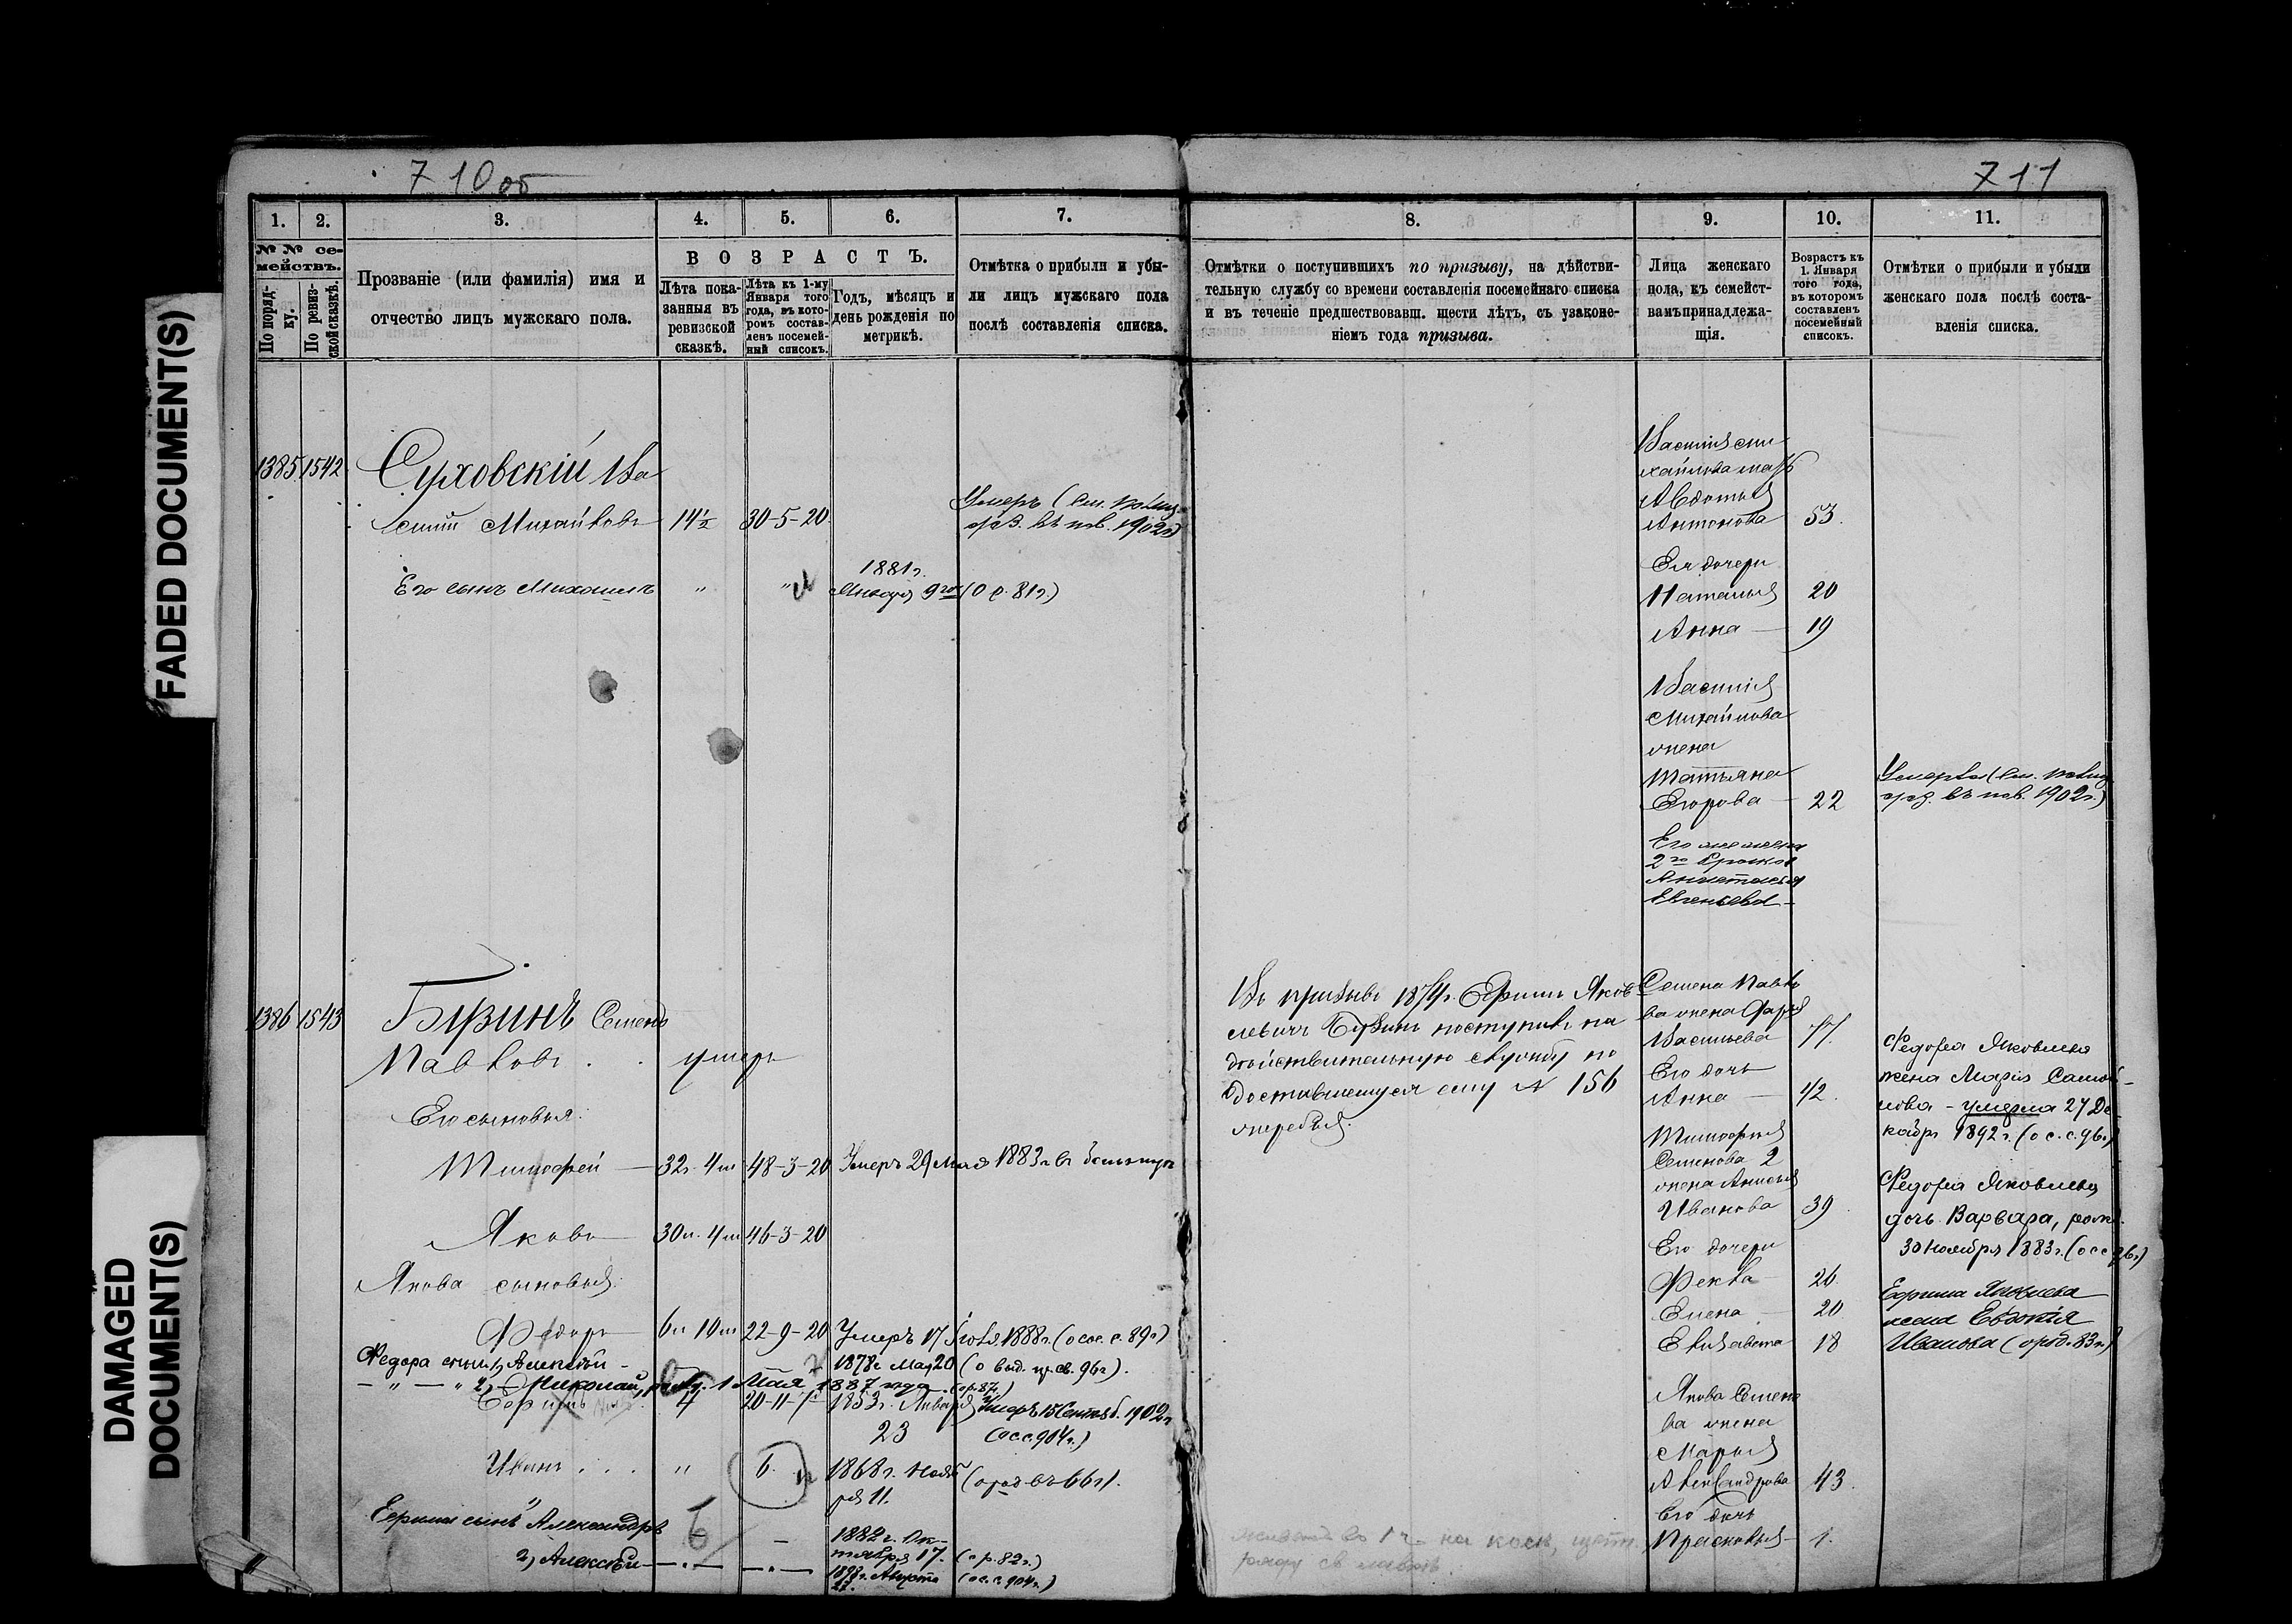 FADED DOCUMENT(S)
DAMAGED
DOCUMENT(S)
710 об
1.
2.
3.
4.
5.
6.
7.
№№ се-
мействъ.
По поряд-
ку.
По ревиз-
ской сказкѣ.
Прозваніе (или фамилія) имя и
отчество лицъ мужскаго пола.
ВОЗРАСТЪ.
Лѣта пока-
занныя въ
ревизской
сказкѣ.
Лѣта къ 1-му
Января того
года, въ кото-
ромъ состав-
ленъ посемей-
ный списокъ.
Годъ, мѣсяцъ и
день рожденія по
метрикѣ.
Отмѣтка о прибыли и убы-
ли лицъ мужскаго пола
послѣ составленія списка.
1385 1542 Суховскій Ва
силій Михайловъ 14½ 30-5-20
Умеръ (см.
въ 1902г)
Его сынъ Михаилъ " " 1881г.
Января 9го (О с. 81г.)
1386 1543 Бузинъ Семенъ
Павловъ . . умеръ
Его сыновья:
Тимофей — 32г. 4м 48-3-20 Умеръ 29 Мая 1883г въ больницѣ
Яковъ — 30л. 4м 46-3-20
Якова сыновья:
Федоръ — 6л 10м 22-9-20 Умеръ 17 Іюля 1888г. (о сос. с. 89г)
Федора сыны 1, Алексѣй - 1878г Мая 20 (о выд. пр. св. 96г).
— " — " 2, — Николай, 1 Мая 1887 года (ор. 87.)
Ефимъ 4 20-11- 1853г. Января Умеръ 15 Сентяб. 1902г
23 (о с с. 904г.)
Иванъ . . . " 6. 1868г. Нояб
ря 11. (о род въ 66г).
Ефима сынъ Александръ — 1882г. Ок-
тября 17. (о р. 82г.)
2, Алексѣй —"— —"— Августа
(о с. с. 904г.)
711
8.
9.
10.
11.
Отмѣтки о поступившихъ по призыву, на дѣйстви-
тельную службу со времени составленія посемейнаго списка
и въ теченіе предшествовавш. шести лѣтъ, съ узаконе-
ніемъ года призыва.
Лица женскаго
пола, къ семейст-
вамъ принадлежа-
щія.
Возрастъ къ
1. Января
того года,
въ которомъ
составленъ
посемейный
списокъ.
Отмѣтки о прибыли и убыли
женскаго пола послѣ соста-
вленія списка.
Василія Ми
хайлова мать
Авдотья
Антонова 53.
Ея дочери
Наталья 20
Анна — 19
Василія
Михайлова
жена
Татьяна
Егорова — 22
Умерла (см.
въ 1902г.)
Его жена
2го брака
Анастасія
Евгеньева -
Въ призывъ 1874г. Ефимъ Яков
левичъ Бузинъ поступилъ на
дѣйствительную службу по
доставшемуся ему № 156
жеребья.
Семена Павло
ва жена
Васильева 77.
Его дочь
Анна — 42.
Тимофея
Семенова 2
жена Анисья
Иванова 39
Его дочери
Фекла — 26.
Елена — 20
Елизавета 18
Якова Семено
ва жена
Марья
Александрова 43.
Его дочь
Прасковья — 1.
Федора Яковлева
жена Марія Самой-
лова - умерла 27 Де-
кабр 1892г. (о с. с. 96г)
Федора Яковлева
дочь Варвара, рожд.
30 ноября 1883г. (о с с 96г)
Ефима Яковлева
жена Евдокія
Иванова (о род. 83г.)